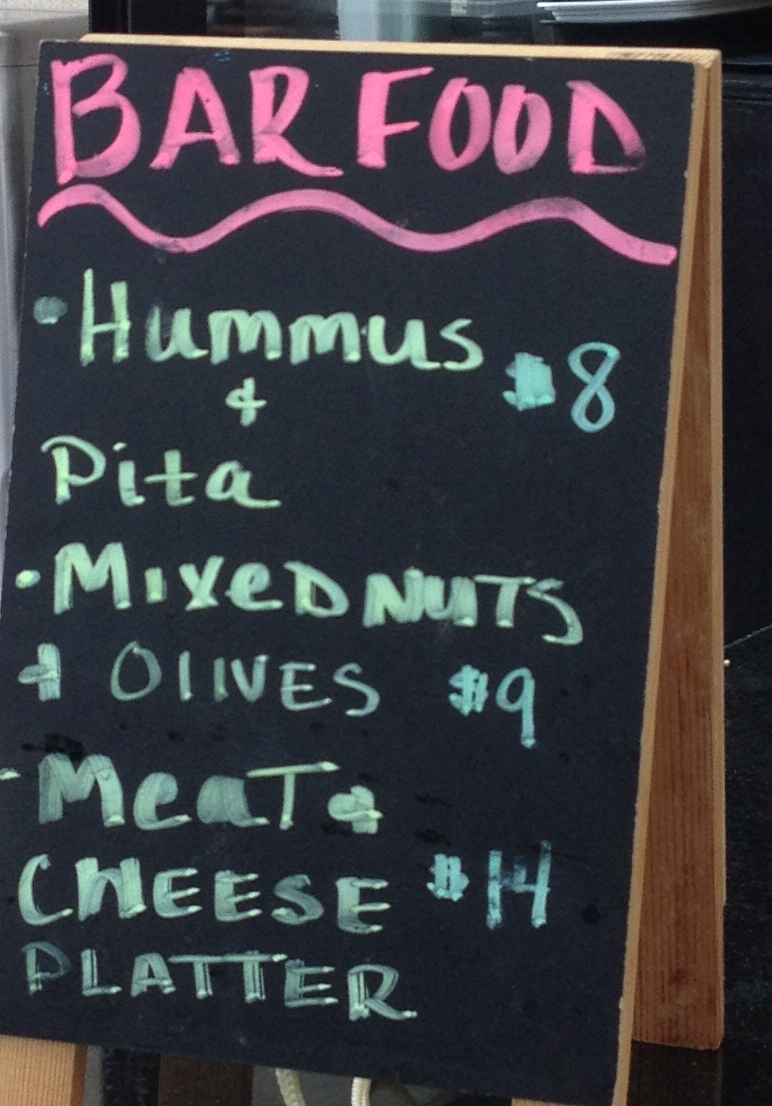 BAR FOOD
• Hummus $8
&
Pita
• MIXED NUTS
& OLIVES $9
- MeaT &
CHEESE $14
PLATTER